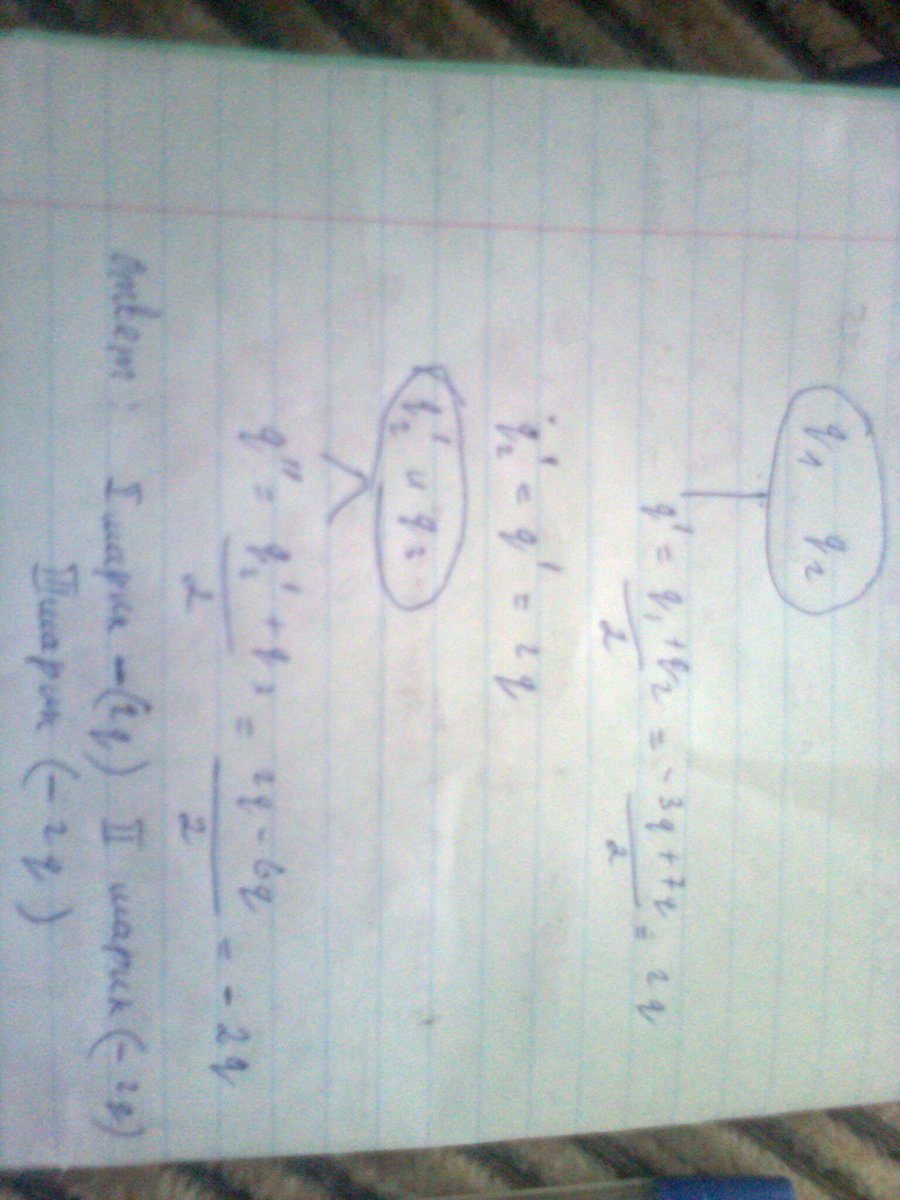 q₁ q₂
q' = q₁ + q₂ / 2 = -3q + 7q / 2 = 2q
q₂' = q' = 2q
q₂' и q₃
q'' = q₂' + q₃ / 2 = 2q - 6q / 2 = -2q
Ответ: I шарик - (2q) II шарик (-2q)
III шарик (-2q)